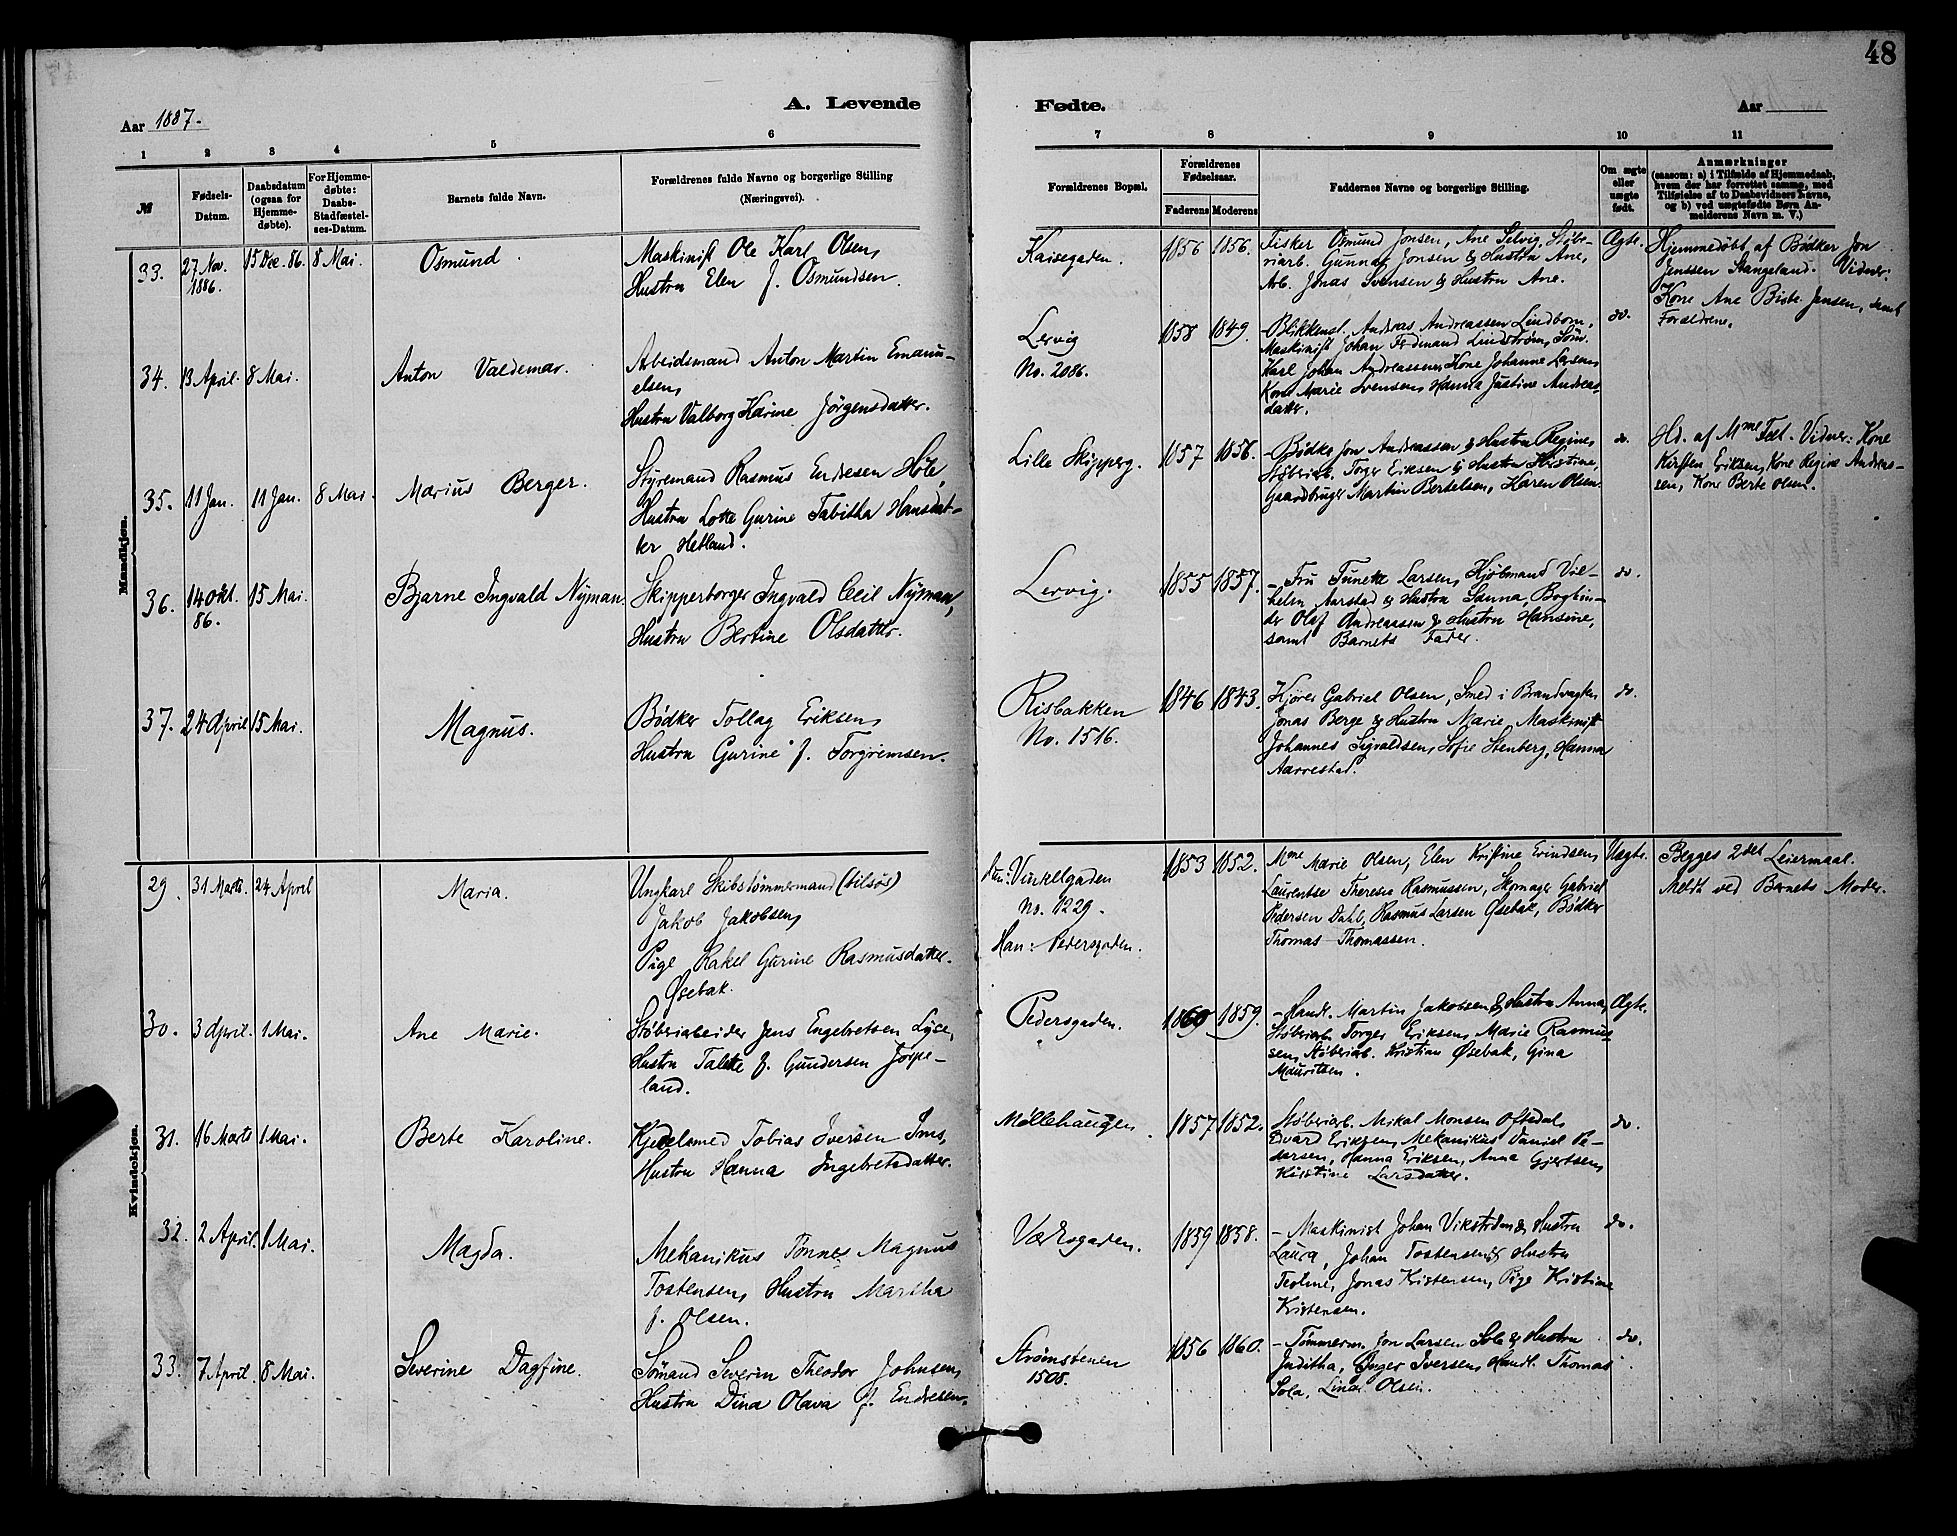 48
A. Levende
Fødte.
Aar 1887.
Aar
1 2 3 4 5 6
7 8 9 10 11
№
Fødsels-
Datum.
Daabsdatum
(ogsaa for
Hjemme-
døbte).
For Hjemme-
døbte:
Daabs-
Stadfæstel-
ses-Datum.
Barnets fulde Navn.
Forældrenes fulde Navne og borgerlige Stilling
(Næringsvei).
Forældrenes Bopæl.
Forældrenes
Fødselsaar.
Faderens Moderens
Faddernes Navne og borgerlige Stilling.
Om ægte
eller
uægte
født.
Anmærkninger
(saasom: a) i Tilfælde af Hjemmedaab,
hvem der har forrettet samme, med
Tilføielse af to Daabsvidners Navne,
og b) ved uægtefødte Børn An-
melderens Navn m. V.)
Mandkjøn.
33. 27 Nov. 1886. 15 Dec. 86. 8 Mai. Osmund.
Maskinist Ole Karl Olsen,
Hustru Elen f. Osmundsen.
Kaisegaden. 1856 1856.
Fisker Osmund Jonsen, Ane Selvig, Støbe-
riarb. Gunnar Jonsen & Hustru Ane,
Arb. Jonas Svensen & Hustru Ane.
Ægte.
Hjemmedøbt af Bødker Jon
Jenssen Stangeland. Vidner:
Kone Ane Birte Jensen, samt
Forældrene.
34. 13 April. 8 Mai. Anton Valdemar.
Arbeidsmand Anton Martin Emanu-
elsen,
Hustru Valborg Karine Jörgensdatter.
Lervig
No. 2086.
1858 1849.
Blikkensl. Andreas Andreassen Lindborn,
Maskinist Johan Ferdinand Lindstrøm, Søm.
Karl Johan Andreassen, Kone Johanne Larsen,
Kone Marie Svensen, Hanna Justine Andreas-
datter.
do.
35. 11 Jan. 11 Jan. 8 Mai. Marius Berger.
Styremand Rasmus Endresen Høle,
Hustru Lotte Gurine Tabitha Hansdat-
ter Hetland.
Lille Skipperg. 1857 1856.
Bødker Jon Andreassen & Hustru Regine,
Støberiarb. Torger Eriksen & Hustru Kristine,
Gaardbruger Martin Bertelsen, Karen Olsen.
do.
Hd. af Mme Fed. Vidner: Kone
Kirsten Eriksen, Kone Regine Andreas-
sen, Kone Berte Olsen.
36. 14 Okt. 86. 15 Mai. Bjarne Ingvald Nyman.
Skipperborger Ingvald Cecil Nyman,
Hustru Bertine Olsdatter.
Lervig. 1855 1857.
Fru Tunette Larsen, Kjøbmand Vil-
helm Aarstad & Hustru Sanna, Bogbin-
der Olaf Andreassen & Hustru Hansine,
samt Barnets Fader.
do.
37. 24 April 15 Mai. Magnus.
Bødker Tollag Eriksen,
Hustru Gurine f. Torgrimsen.
Risbakken
No. 1516.
1846 1843.
Kjører Gabriel Olsen, Smed i Brandvagten
Jonas Berge & Hustru Marie, Maskinist
Johannes Sigvaldsen, Sofie Stenberg, Hanna
Aarrestad.
do.
Kvindekjøn.
29. 31 Marts. 24 April Maria.
Ungkarl Skibstømmermand (tilsøs)
Jakob Jakobsen,
Pige Rakel Gurine Rasmusdatter
Øsebak.
Hun: Vinkelgaden
No. 1229.
Han: Pedersgaden.
1853 1852.
Mme Marie Olsen, Elen Kristine Erindsen,
Laurentse Therese Rasmussen, Skomager Gabriel
Pedersen Dahl, Rasmus Larsen Øsebak, Bødker
Thomas Thomassen.
Uægte.
Begges 2det Leiermaal.
Meldt ved Barnets Moder.
30. 3 April. 1 Mai. Ane Marie.
Støberiarbeider Jens Engebretsen Lyse,
Hustru Talette f. Gundersen Jørpe-
land.
Pedersgaden. 1860 1859.
Handl. Martin Jakobsen & Hustru Anna,
Støberiarb. Torger Eriksen, Marie Rasmus-
sen, Støberiarb. Kristian Øsebak, Gina
Mauritsen.
Ægte.
31. 16 Marts 1 Mai. Berte Karoline.
Kjedelsmed Tobias Iversen Ims,
Hustru Hanna Ingebretsdatter.
Møllehaugen. 1857 1852.
Støberiarb. Mikal Monsen Oftedal,
Edvard Eriksen, Mekanikus Daniel Pe-
dersen, Hanna Eriksen, Anna Gjertsen,
Kirstine Larsdatter.
do.
32. 2 April. 1 Mai. Magda.
Mekanikus Tønnes Magnus
Tostensen, Hustru Martha
f. Olsen.
Værksgaden. 1859 1858.
Maskinist Johan Vikstrøm & Hustru
Laura, Johan Tostensen & Hustru
Teoline, Jonas Kristensen, Pige Kristine
Kristensen.
do.
33. 7 April. 8 Mai. Severine Dagfine.
Sømand Severin Theodor Johnsen,
Hustru Dina Olava f. Endresen.
Strømstenen
1508.
1856 1860.
Tømmerm. Jon Larsen Sole & Hustru
Juditha, Inger Iversen, Handl. Thomas
Sola, Lina Olsen.
do.